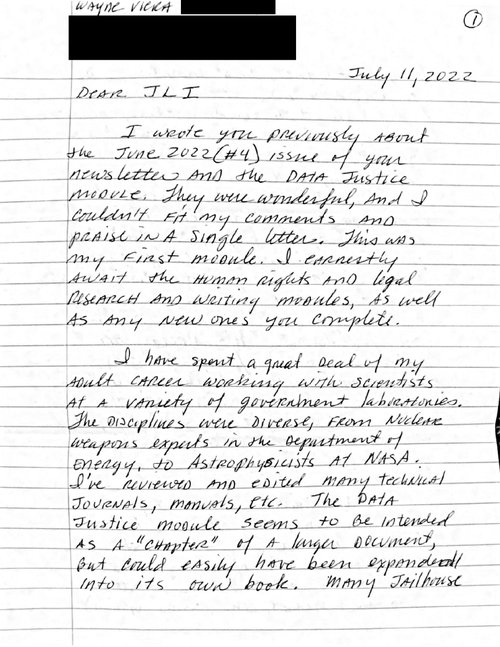 WAYNE VICKA
①
July 11, 2022
DEAR JLI
I wrote you previously about
the June 2022 (#4) issue of your
newsletter AND the DATA Justice
module. They were wonderful, and I
couldn't fit my comments AND
praise in A Single letter. This was
my First module. I earnestly
await the Human rights AND legal
Research AND writing modules, As well
As Any New ones you complete.
I have spent a great Deal of my
Adult career working with scientists
At A variety of government laboratories.
The Disciplines were Diverse, From Nuclear
weapons experts in the Department of
Energy, to Astrophysicists At NASA.
I've reviewed AND edited many technical
Journals, manuals, etc. The DATA
Justice module seems to Be intended
As A "Chapter" of A larger Document,
But could easily have been expanded
into its own book. Many Jailhouse